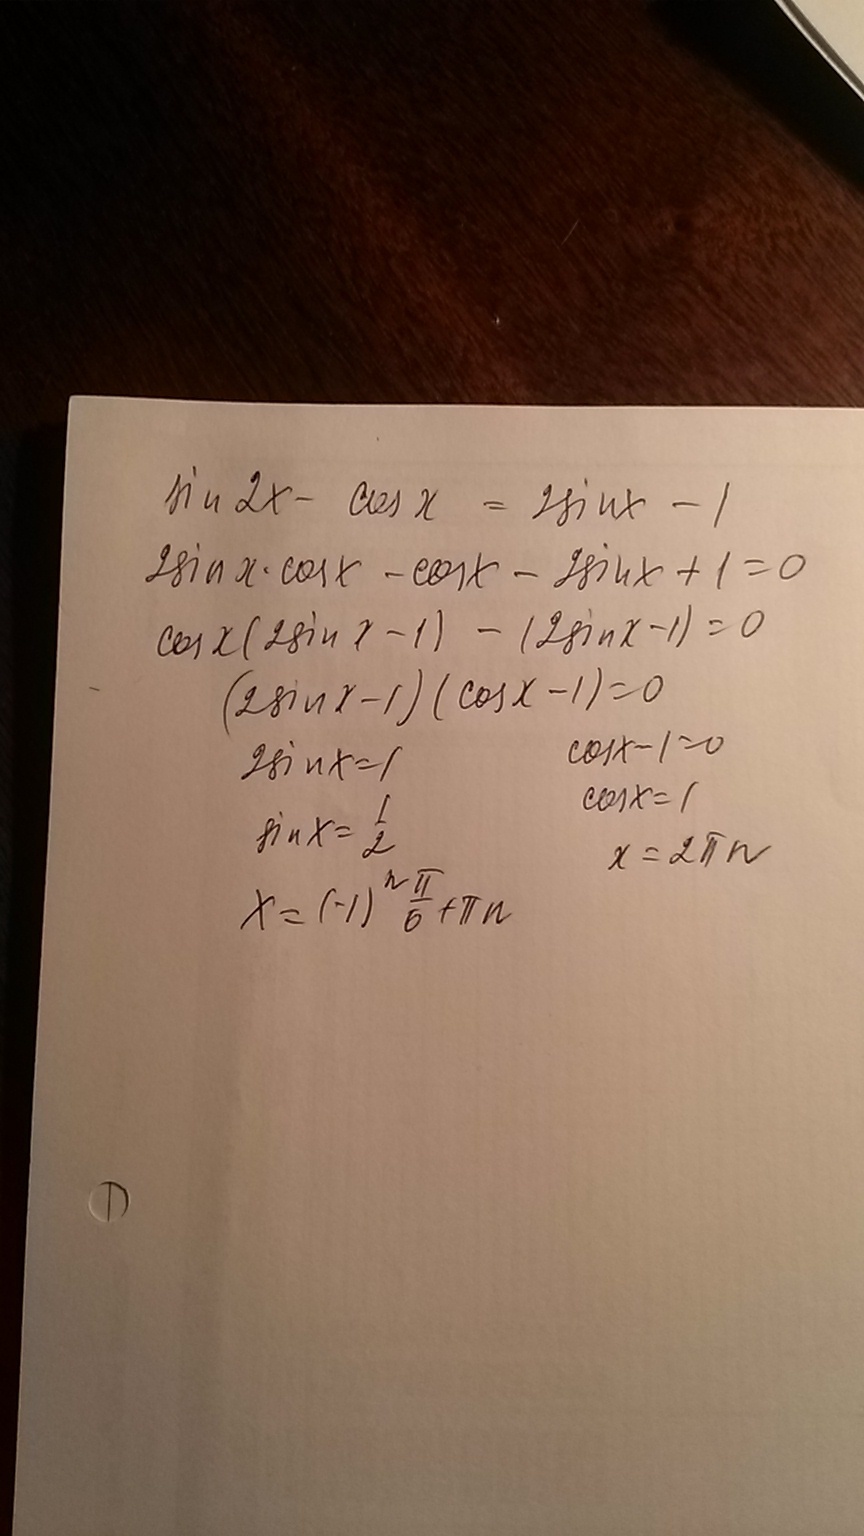 sin 2x - cos x = 2sinx - 1
2sin x · cosx - cosx - 2sinx + 1 = 0
cosx(2sin x - 1) - (2sinx - 1) = 0
(2sinx - 1)(cosx - 1) = 0
2sinx = 1 cosx - 1 = 0
sinx = 1/2 cosx = 1
x = (-1)^n π/6 + πn x = 2πn